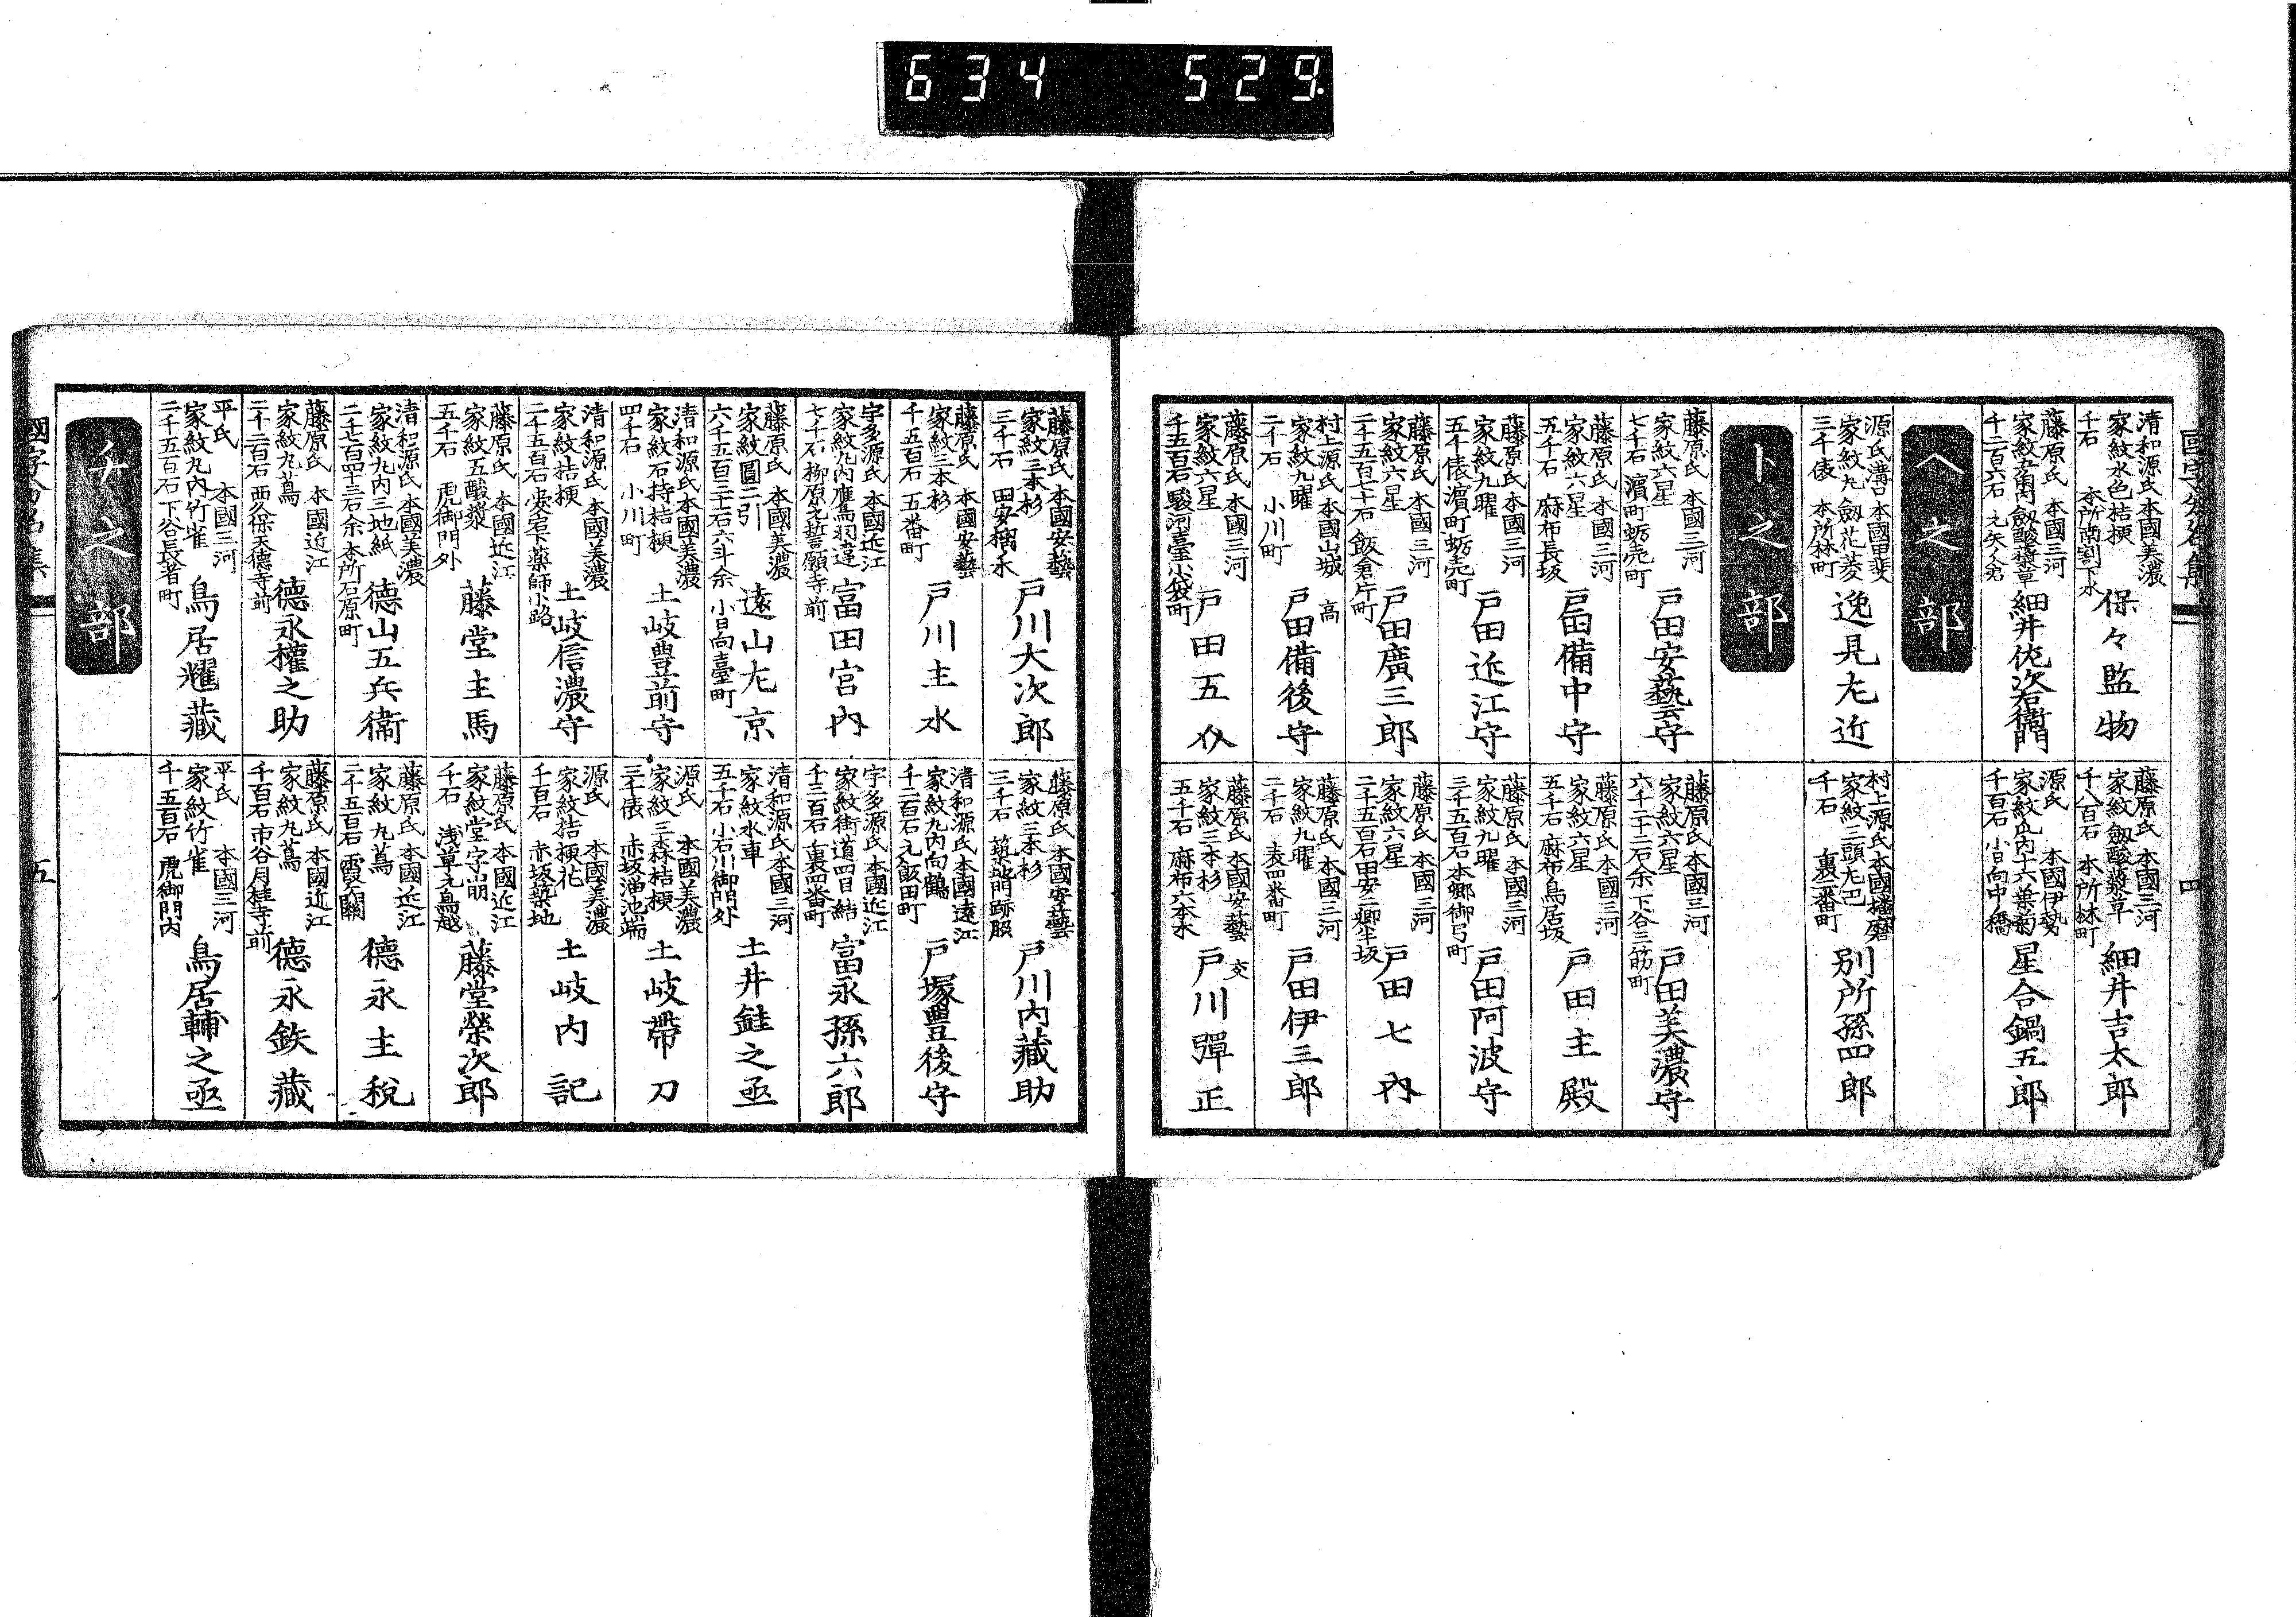 634 529
國字分名集
四
清和源氏 本國美濃
家紋水色桔梗
千石 本所南割下水
保々監物
藤原氏 本國三河
家紋劔酸漿草
千八百石 本所林町
細井吉太郎
藤原氏 本國三河
千二百六石
細井佐次右衛門
源氏 本國伊勢
千百石 小日向中橋
星合鍋五郎
ヘ之部
源氏溝口 本國甲斐
家紋丸劔花菱
三千俵 本所林町
逸見左近
村上源氏 本國播磨
家紋三頭左巴
千石 裏二番町
別所孫四郎
ト之部
藤原氏 本國三河
家紋六星
七千石 濱町蛎売町
戸田安藝守
藤原氏 本國三河
家紋六星
六千二十二石余 下谷三筋町
戸田美濃守
藤原氏 本國三河
家紋六星
五千石 麻布長坂
戸田備中守
藤原氏 本國三河
家紋六星
五千石 麻布鳥居坂
戸田主殿
藤原氏 本國三河
家紋九曜
五千俵 濱町蛎売町
戸田近江守
藤原氏 本國三河
家紋九曜
三千五百石 本郷御弓町
戸田阿波守
藤原氏 本國三河
家紋六星
二千五百七十石 飯倉片町
戸田廣三郎
藤原氏 本國三河
家紋六星
二千五百石
戸田七内
村上源氏 本國山城 高
家紋九曜
二千石 小川町
戸田備後守
藤原氏 本國三河
家紋九曜
二千石 表四番町
戸田伊三郎
藤原氏 本國三河
家紋六星
千五百石 駿河臺小袋町
戸田五介
藤原氏 本國安藝 交
家紋三本杉
五千石 麻布六本木
戸川彈正
藤原氏 本國安藝
家紋三本杉
三千石
戸川大次郎
藤原氏 本國安藝
家紋三本杉
三千石 築地門跡脇
戸川内藏助
藤原氏 本國安藝
家紋三本杉
千五百石 五番町
戸川主水
清和源氏 本國遠江
家紋丸内向鶴
千二百石 元飯田町
戸塚豊後守
宇多源氏 本國近江
家紋丸内鷹羽違
七千石 柳原元誓願寺前
富田宮内
宇多源氏 本國近江
千三百石 裏四番町
富永孫六郎
藤原氏 本國美濃
家紋圓二引
六千五百三十石六斗余 小日向臺町
遠山左京
清和源氏 本國三河
家紋水車
五千石 小石川御門外
土井鉎之亟
清和源氏 本國美濃
家紋石持桔梗
四千石 小川町
土岐豊前守
源氏 本國美濃
家紋三森桔梗
三千俵 赤坂溜池端
土岐帶刀
清和源氏 本國美濃
家紋桔梗
二千五百石 愛宕下薬師小路
土岐信濃守
源氏 本國美濃
家紋桔梗花
千百石 赤坂築地
土岐内記
藤原氏 本國近江
家紋五酸漿
五千石 虎御門外
藤堂主馬
藤原氏 本國近江
千石 浅草元鳥越
藤堂榮次郎
清和源氏 本國美濃
家紋丸内三地紙
二千七百四十三石余 本所石原町
德山五兵衞
藤原氏 本國近江
家紋丸蔦
二千五百石 霞関
德永主税
藤原氏 本國近江
家紋丸蔦
二千二百石 西久保天德寺前
德永權之助
藤原氏 本國近江
家紋丸蔦
千百石 市谷月桂寺前
德永鉄藏
平氏 本國三河
家紋丸内竹雀
二千五百石 下谷長者町
鳥居耀藏
平氏 本國三河
家紋竹雀
千五百石 虎御門内
鳥居輔之亟
チ之部
國字分名集
五